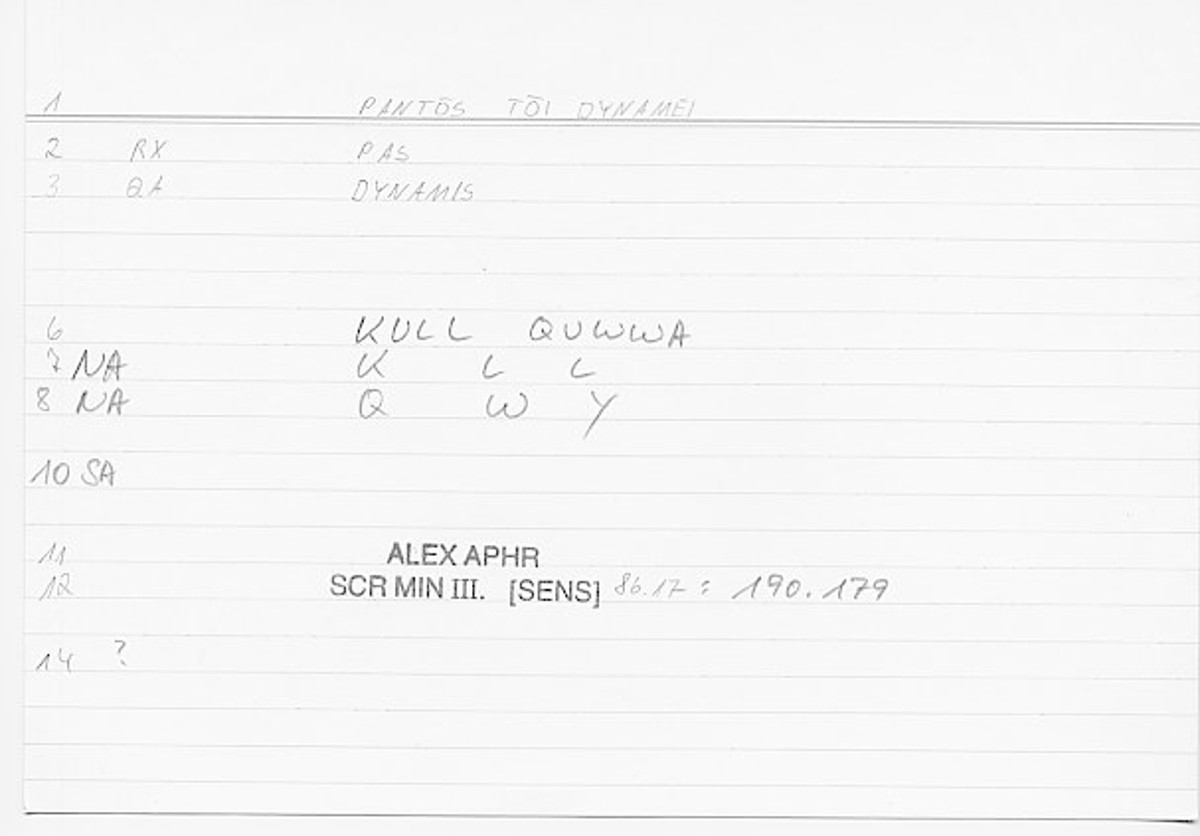 1 PANTŌS TŌI DYNAMEI
2 RX PAS
3 QA DYNAMIS
6 KULL QUWWA
7 NA K L L
8 NA Q W Y
10 SA
11 ALEX APHR
12 SCR MIN III. [SENS] 86.17 : 190.179
14 ?